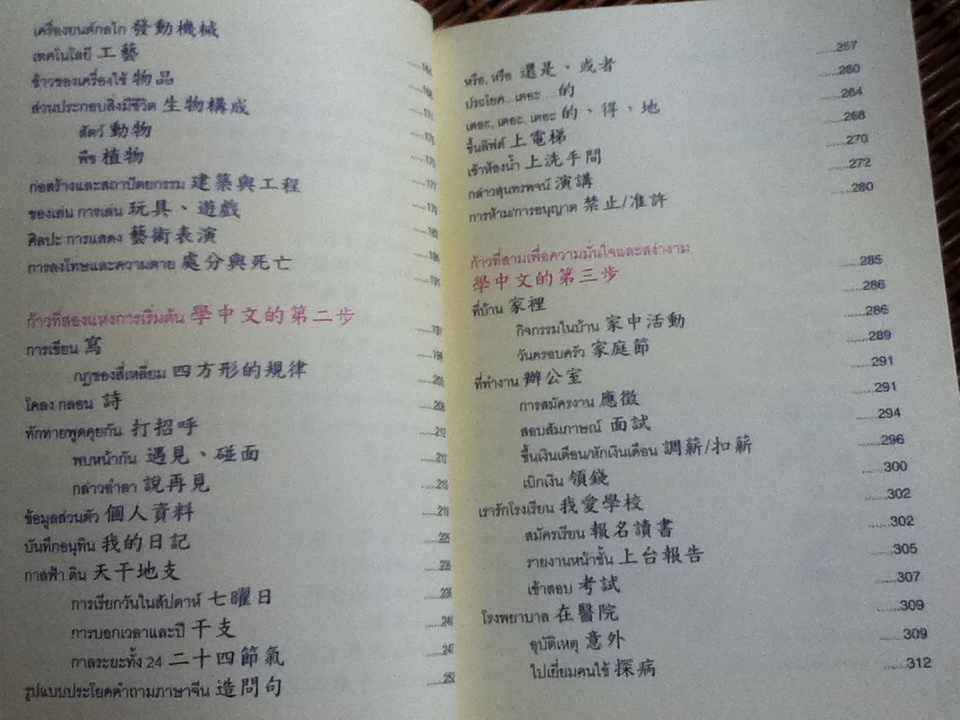 เครื่องยนต์กลไก 發動機械
เทคโนโลยี 工藝
ข้าวของเครื่องใช้ 物品
ส่วนประกอบสิ่งมีชีวิต 生物構成
สัตว์ 動物
พืช 植物
ก่อสร้างและสถาปัตยกรรม 建築與工程
ของเล่น การเล่น 玩具、遊戲
ศิลปะ การแสดง 藝術表演
การลงโทษและความตาย 處分與死亡
ก้าวที่สองแห่งการเริ่มต้น 學中文的第二步
การเขียน 寫
กฎของสี่เหลี่ยม 四方形的規律
โคลง กลอน 詩
ทักทายพูดคุยกัน 打招呼
พบหน้ากัน 遇見、碰面
กล่าวอำลา 說再見
ข้อมูลส่วนตัว 個人資料
บันทึกอนุทิน 我的日記
กาลฟ้า ดิน 天干地支
การเรียกวันในสัปดาห์ 七曜日
การบอกเวลาและปี 干支
กาลระยะทั้ง 24 二十四節氣
รูปแบบประโยคคำถามภาษาจีน 造問句
หรือ, หรือ 還是、或者 ......257
ประโยค...เตอะ ... 的 ......260
เตอะ, เตอะ, เตอะ 的、得、地 ......264
ขึ้นลิฟต์ 上電梯 ......268
เข้าห้องน้ำ 上洗手間 ......270
กล่าวสุนทรพจน์ 演講 ......272
การห้าม/การอนุญาต 禁止/准許 ......280
ก้าวที่สามเพื่อความมั่นใจและสง่างาม
學中文的第三步 ......285
ที่บ้าน 家裡 ......286
กิจกรรมในบ้าน 家中活動 ......286
วันครอบครัว 家庭節 ......289
ที่ทำงาน 辦公室 ......291
การสมัครงาน 應徵 ......291
สอบสัมภาษณ์ 面試 ......294
ขึ้นเงินเดือน/หักเงินเดือน 調薪/扣薪 ......296
เบิกเงิน 領錢 ......300
เรารักโรงเรียน 我愛學校 ......302
สมัครเรียน 報名讀書 ......302
รายงานหน้าชั้น 上台報告 ......305
เข้าสอบ 考試 ......307
โรงพยาบาล 在醫院 ......309
อุบัติเหตุ 意外 ......309
ไปเยี่ยมคนไข้ 探病 ......312